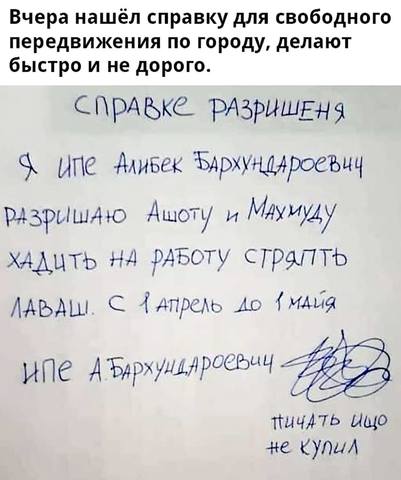 Вчера нашёл справку для свободного
передвижения по городу, делают
быстро и не дорого.
СПРАВКЕ РАЗРИШЕНЯ
Я ИПе Алибек БАРХУНДАРОЕВИЧ
РАЗРИШАЮ Ашоту и МАХМУДУ
ХАДИТЬ НА РАБОТУ СТРЯПТЬ
ЛАВАШ. С 1 АПРЕЛЬ ДО 1 МАЙЯ
ИПе А.БАРХУНДАРОЕВИЧ
ПИЧАТЬ ИЩО
Не КУПИЛ